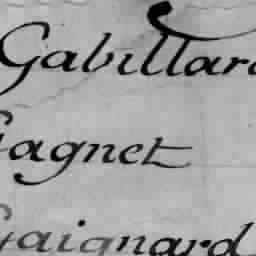 Gabillard
Gagnet
Gaignard